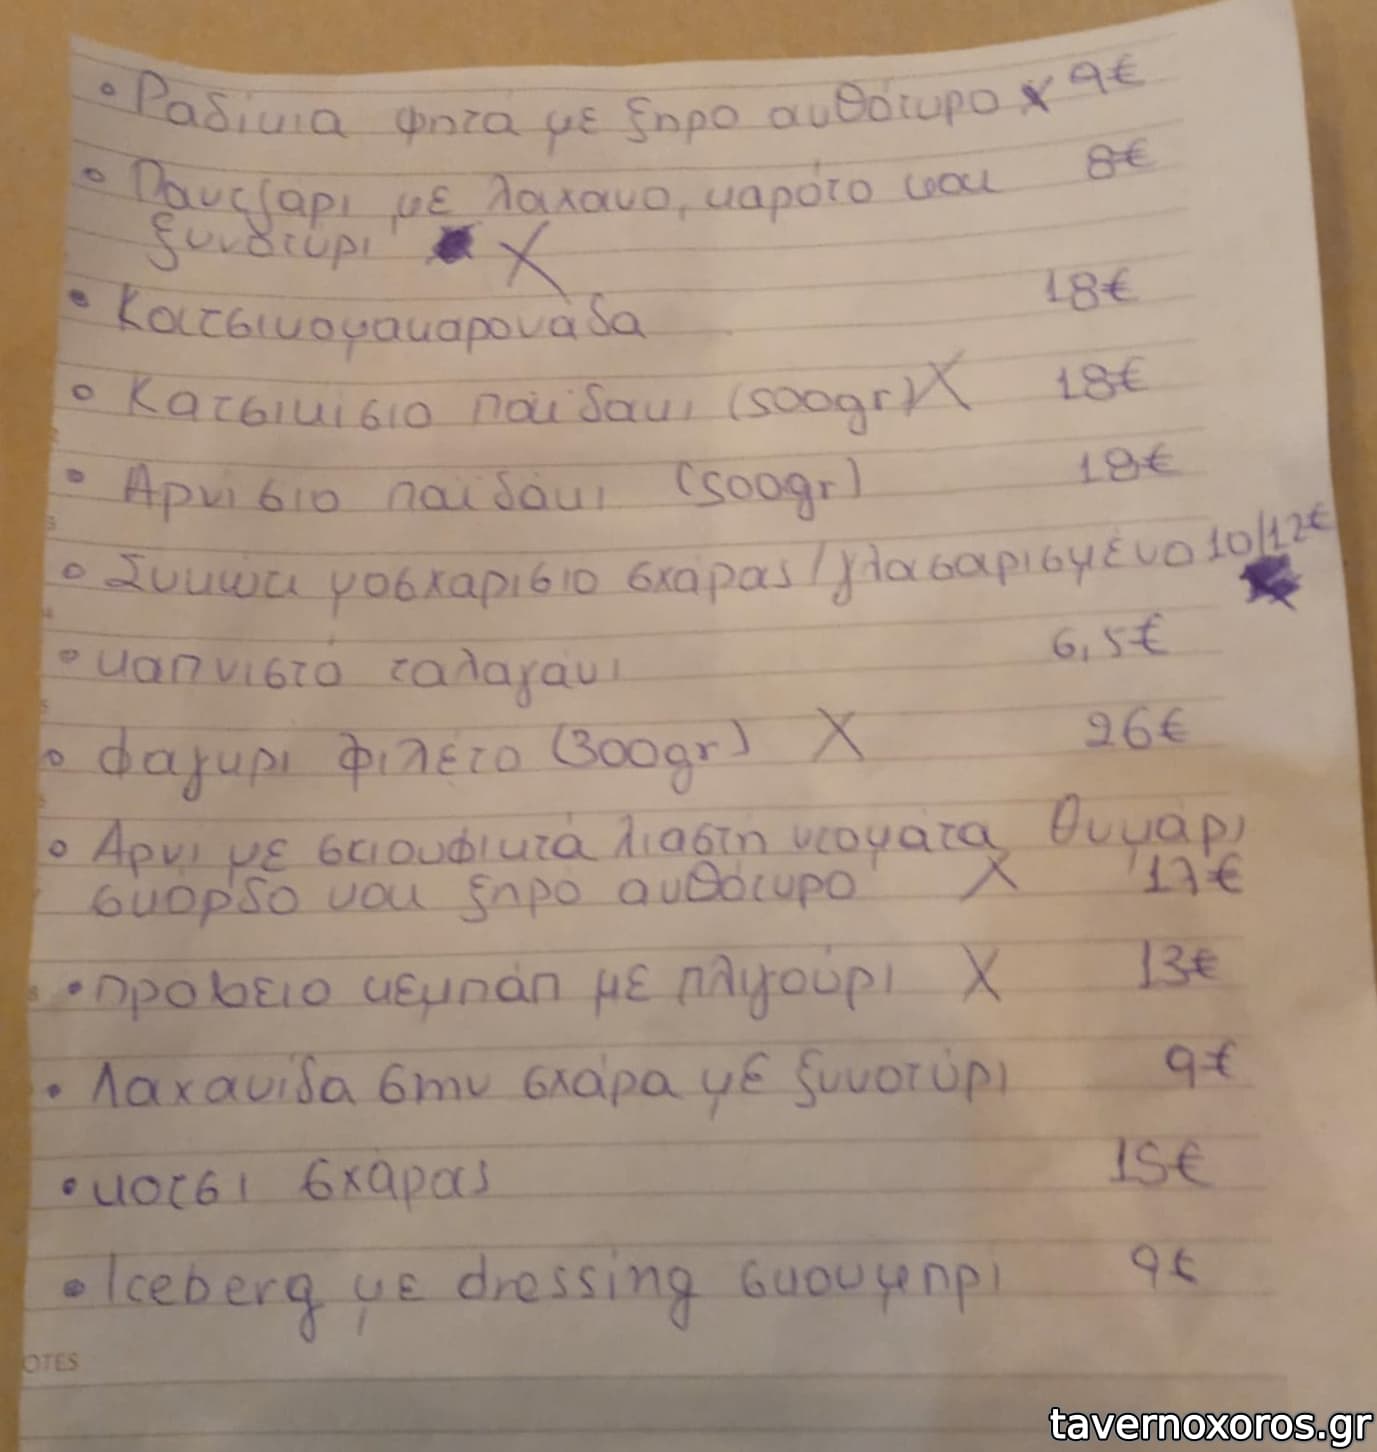 • Ραδίκια φητά με ξηρο ανθότυρο X 9€
• Παντζάρι με λάχανο, καρότο και 8€
ξυνοτύρι X
• Κατσικομακαρονάδα 18€
• Κατσικίσιο παϊδακι (500gr) X 18€
• Αρνίσιο παϊδάκι (500gr) 18€
• Συκώτι μοσχαρίσιο σχάρας/γλασαρισμένο 10/12€
• καπνιστό ταλαγάνι 6,5€
• Φαγγρι φιλέτο (300gr) X 26€
• Αρνί με σιουφιχτά λιαστή ντομάτα θυμάρι
σκόρδο και ξηρο ανθότυρο X 17€
• πρόβειο κεμπάπ με πλιγούρι X 13€
• Λαχανίδα στην σχάρα με ξυνοτύρι 9€
• κότσι σχάρας 15€
• Iceberg με dressing σκουμπρί 9€
OTES
tavernoxoros.gr